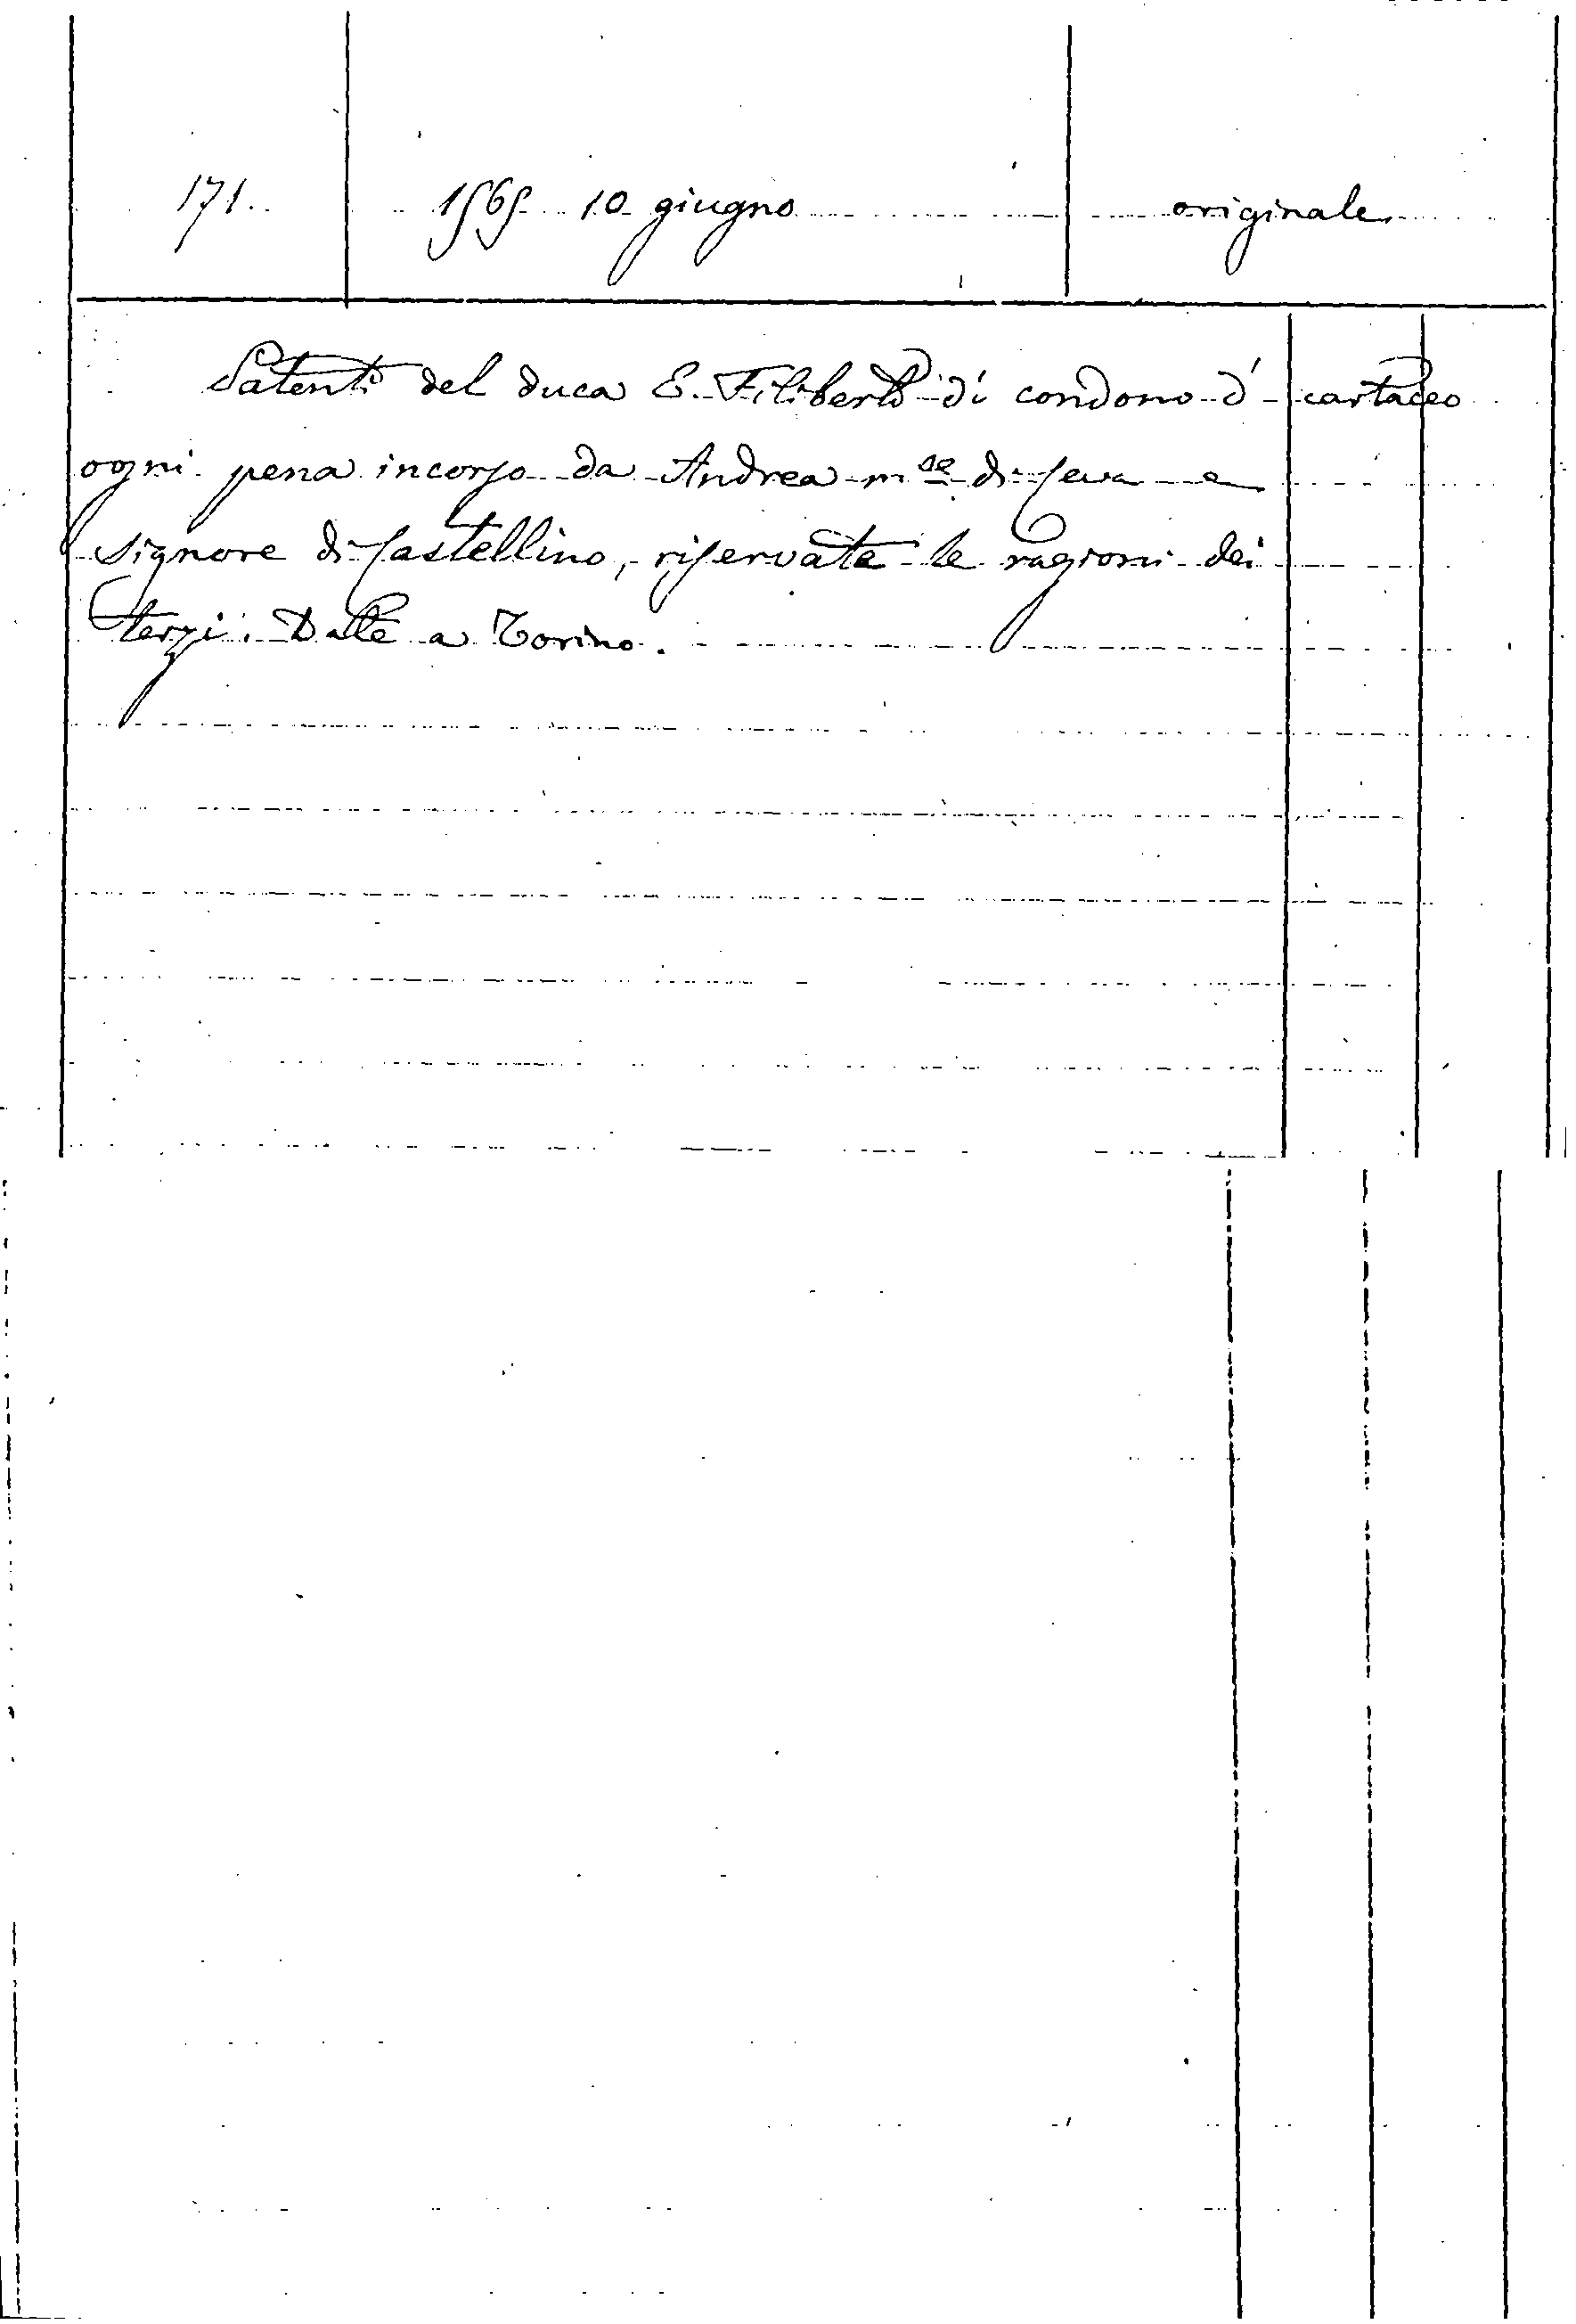 171. 1565 10 giugno originale
Patenti del duca E. Filiberto di condono d' cartaceo
ogni pena incorso da Andrea m.se di Ceva e
signore di Castellino, riservate le ragioni dei
terzi. Date a Torino.